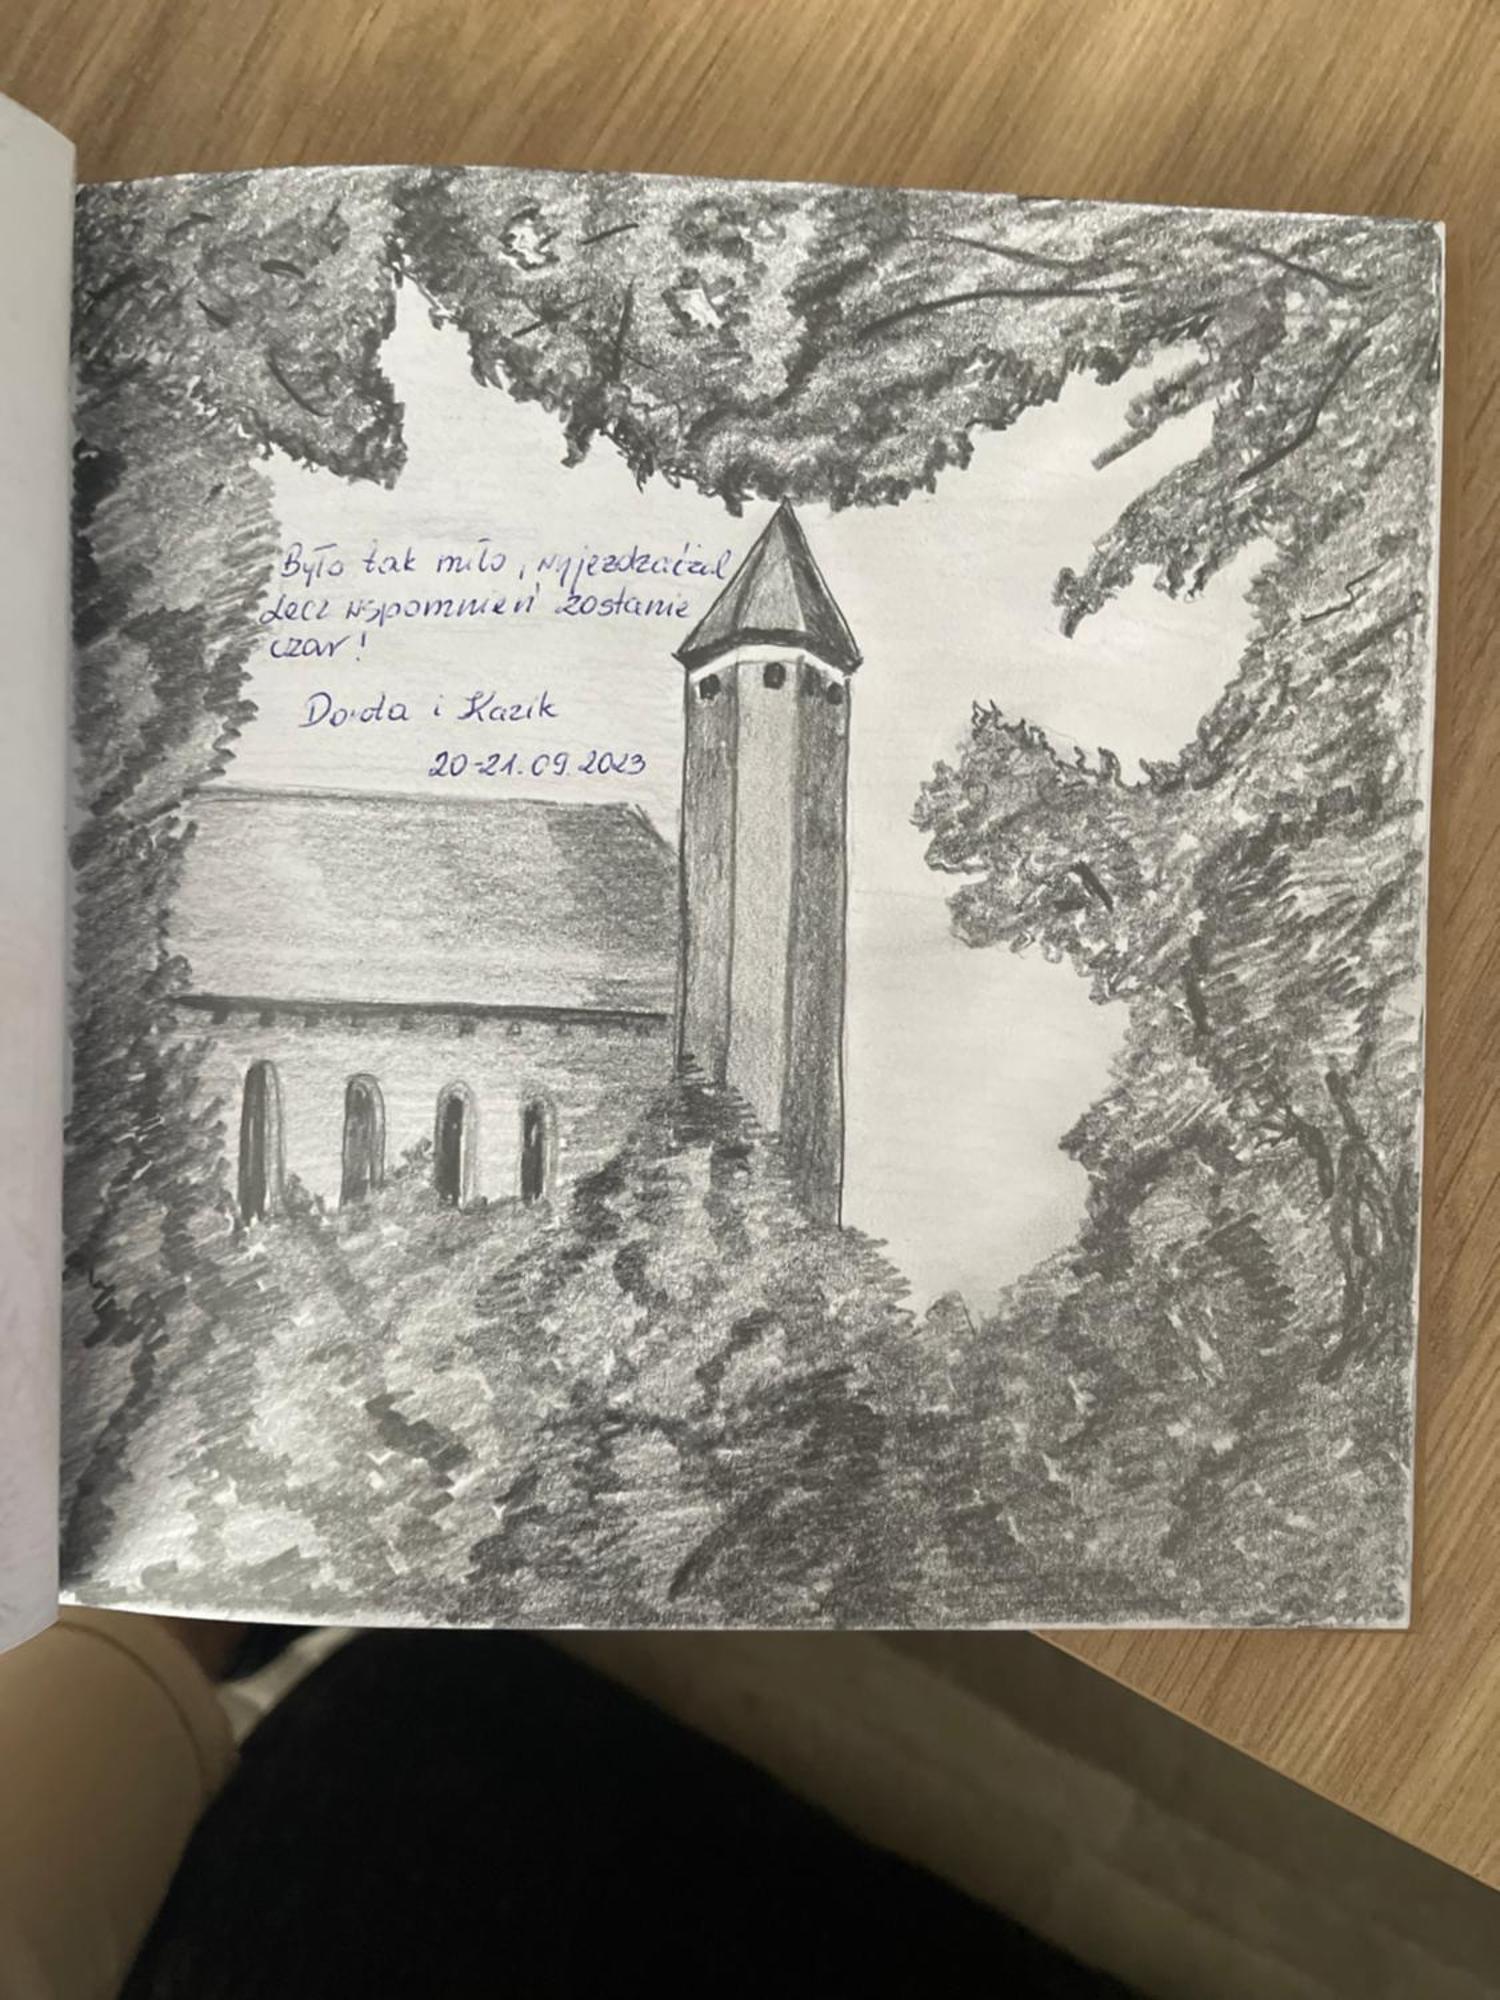 Było tak miło, wyjezdzać żal
Lecz wspomnień zostanie
czar!
Dorota i Kazik
20-21.09.2023